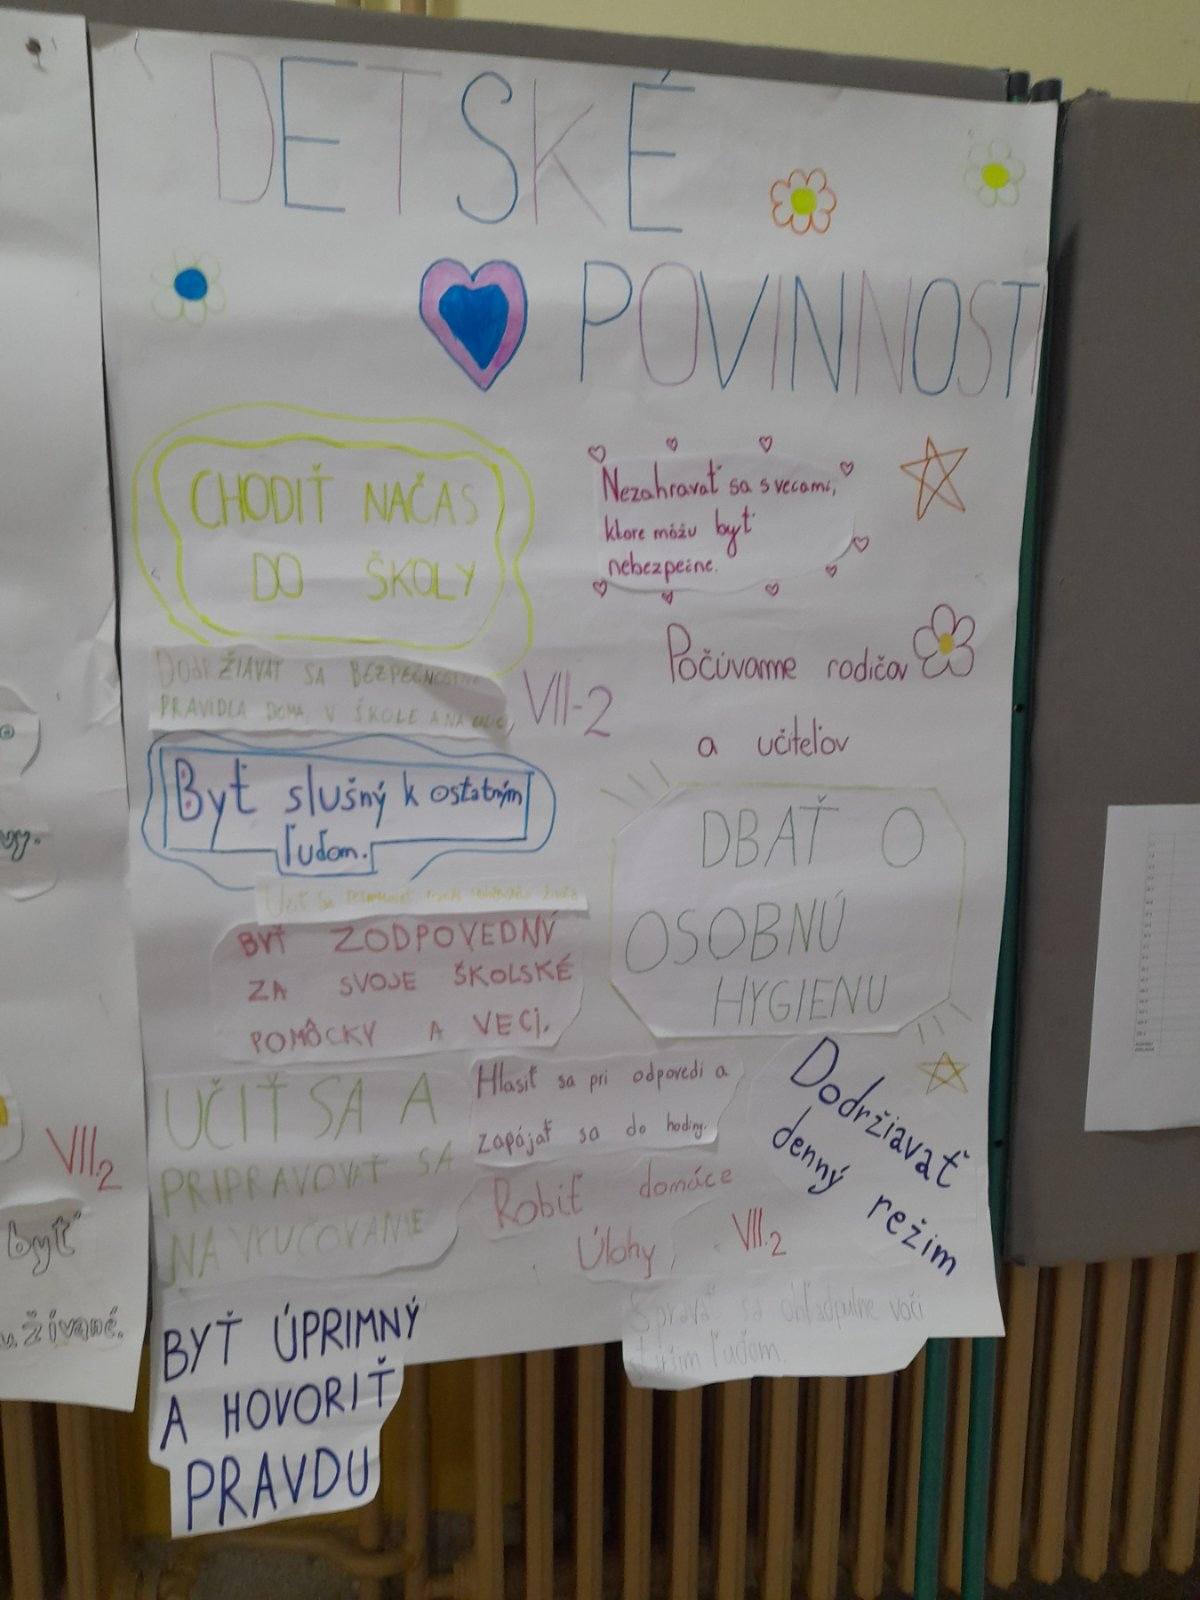 DETSKÉ
POVINNOSTI
CHODIŤ NAČAS
DO ŠKOLY
Nezahravať sa s vecami,
ktore môžu byť
nebezpečne.
DODRŽIAVAT SA BEZPEČNOSTNE
PRAVIDLA DOMA, V ŠKOLE A NA
VII-2
Počúvame rodičov
a učiteľov
Byť slušný k ostatným
ľuďom.
DBAŤ O
OSOBNÚ
HYGIENU
Učiť sa
BYŤ ZODPOVEDNÝ
ZA SVOJE ŠKOLSKÉ
POMÔCKY A VECI.
UČIŤ SA A
PRIPRAVOVAŤ SA
NA VYUČOVANIE
Hlasiť sa pri odpovedi a
zapájať sa do hodiny.
Robiť domáce
Úlohy
VII.2
Dodržiavať
denný režim
Spravať sa ohľadpulne voči
ľuďom.
BYŤ ÚPRIMNÝ
A HOVORIŤ
PRAVDU
vy.
VII.2
byť
užívané.